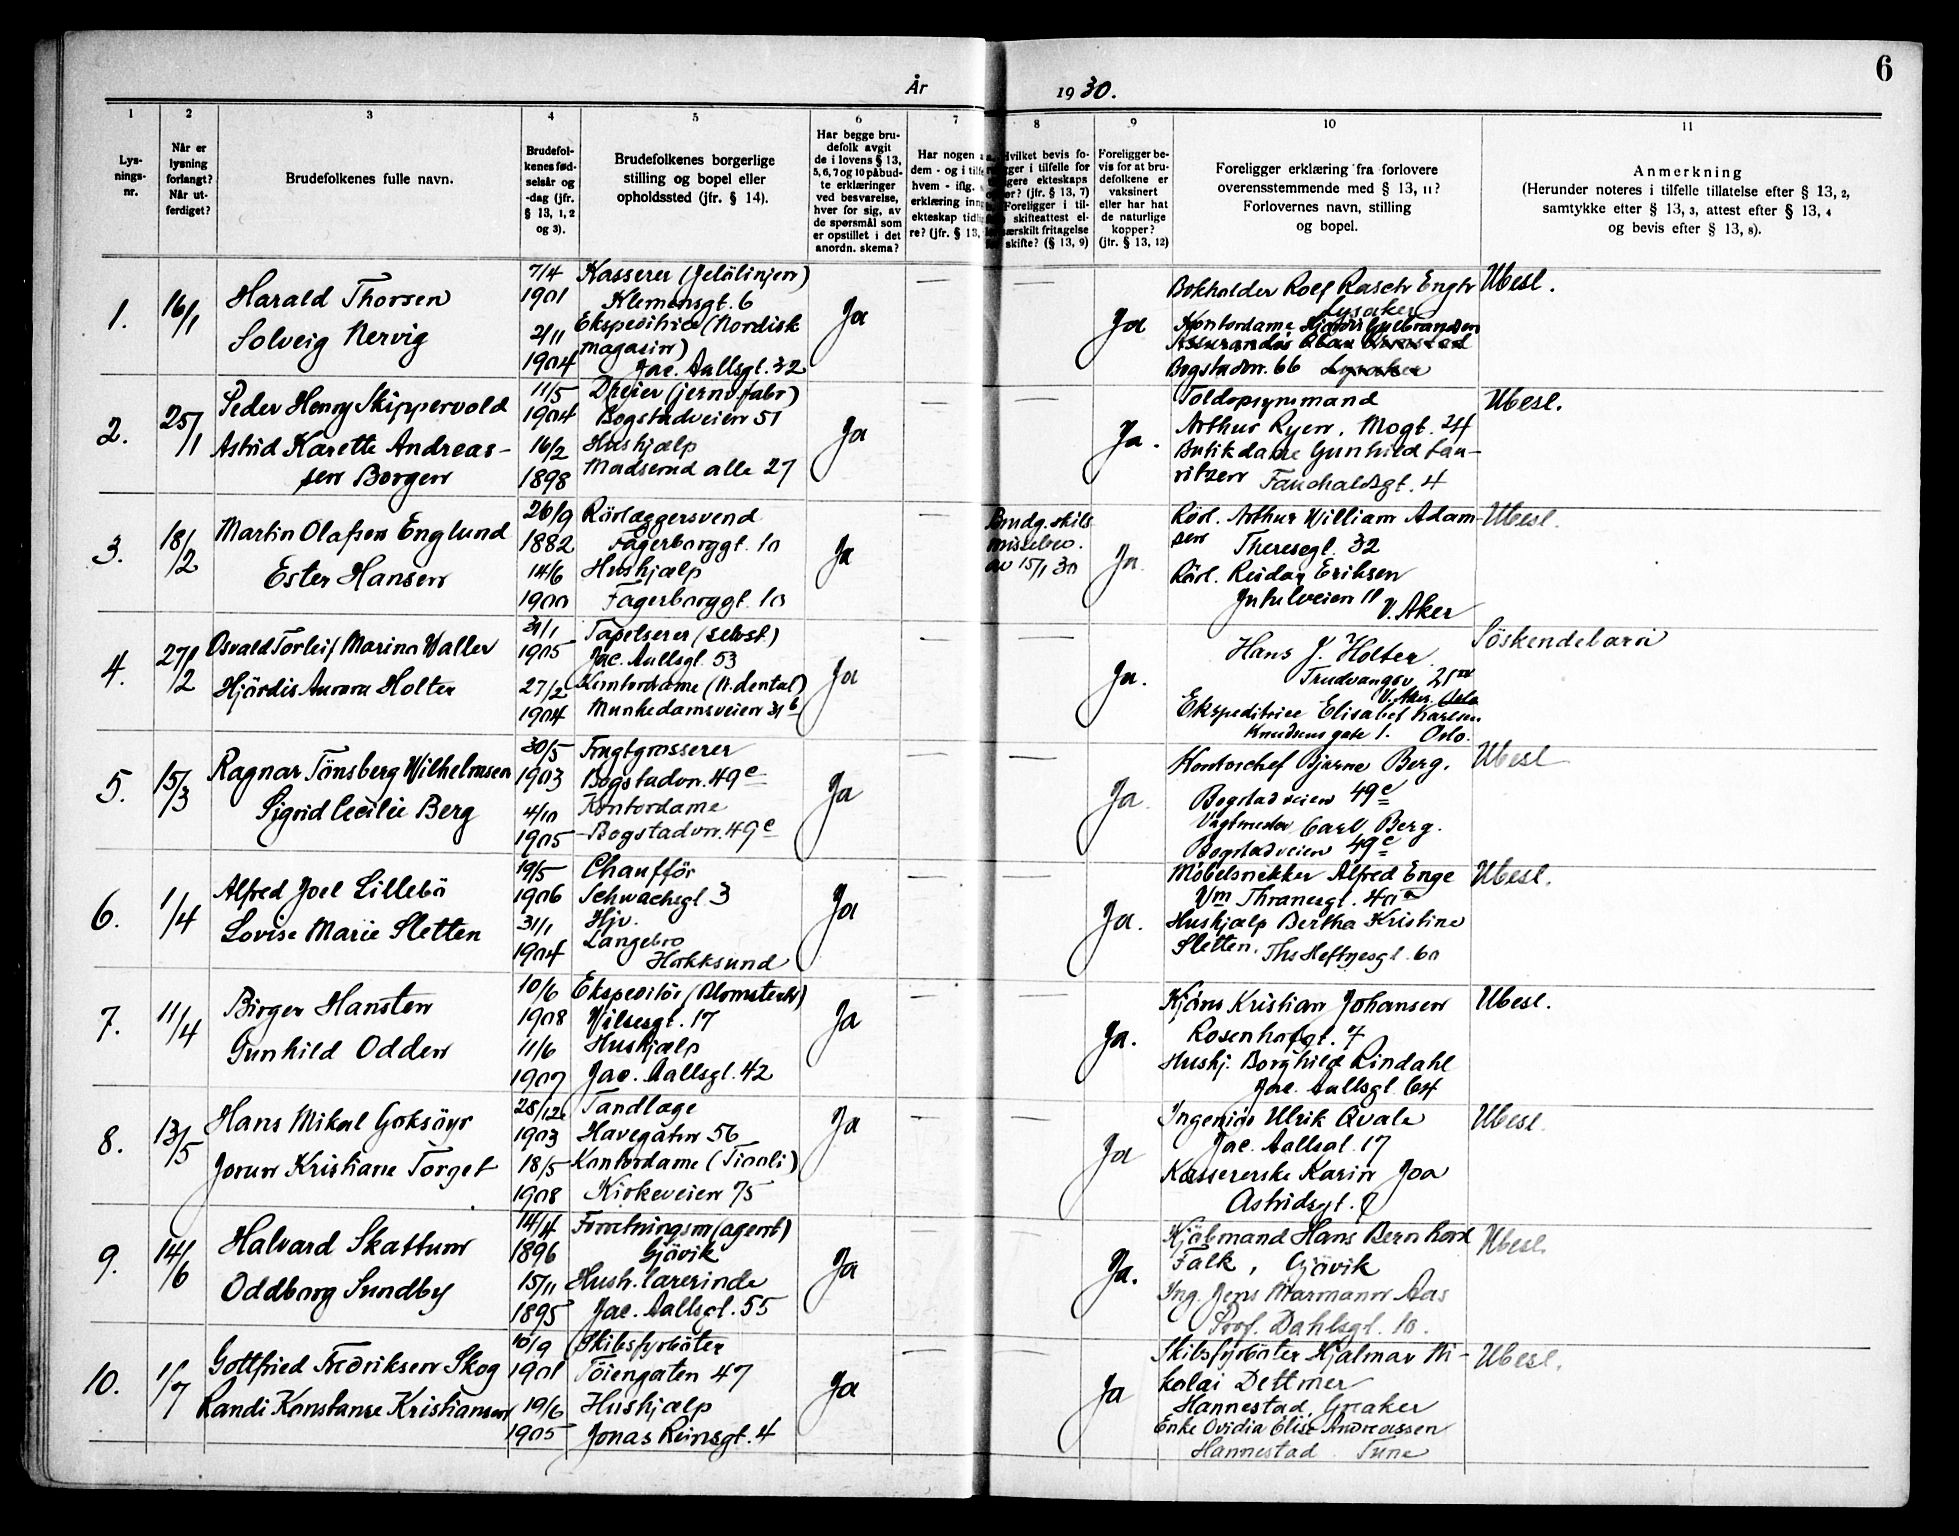 6
År 1930.
1
2
3
4
5
6
7
8
9
10
11
Lys-
nings-
nr.
Når er
lysning
forlangt?
Når ut-
ferdiget?
Brudefolkenes fulle navn.
Brudefol-
kenes fød-
selsår og
-dag (jfr.
§ 13, 1, 2
og 3).
Brudefolkenes borgerlige
stilling og bopel eller
opholdssted (jfr. § 14).
Har begge bru-
defolk avgit
de i lovens § 13,
5, 6, 7 og 10 påbud-
te erklæringer
ved besvarelse,
hver for sig, av
de spørsmål som
er opstillet i det
anordn. skema?
Har nogen
dem - og i
hvem - iflg.
erklæring
ekteskap
re? (jfr. § 13,
Hvilket bevis fo-
i tilfelle for
ekteskaps
(jfr. § 13, 7)
Foreligger i til-
skifteattest el-
fritagelse
skifte? (§ 13, 9)
Foreligger be-
vis for at bru-
defolkene er
vaksinert
eller har hat
de naturlige
kopper?
(jfr. § 13, 12)
Foreligger erklæring fra forlovere
overensstemmende med § 13, 11?
Forlovernes navn, stilling
og bopel.
Anmerkning
(Herunder noteres i tilfelle tillatelse efter § 13, 2,
samtykke efter § 13, 3, attest efter § 13, 4
og bevis efter § 13, 8).
1.
16/1
Harald Thorsen
Solveig Nervig
7/4
1901
2/11
1904
Kasserer (Jelölinjen)
Klemensgt. 6
Ekspeditrice (Nordisk
magasin)
Jac. Aallsgt. 32
Ja
—
—
Ja
Bokholder Rolf Rasch Engh
Lysaker
Kontordame Hjördis Gulbrandsen
Bogstadvn. 66 Lysaker
Ubesl.
2.
25/1
Peder Henry Skippervold
Astrid Karette Andreas-
sen Borgen
11/5
1904
16/2
1898
Dreier (jernv.fabr)
Bogstadveien 51
Hushjælp
Madserud alle 27
Ja
—
—
Ja.
Toldopsynsmand
Arthur Ryen, Mogt. 24
Butikdame Gunhild Lau-
ritzen Fauchaldsgt. 4
Ubesl.
3.
18/2
Martin Olafsen Englund
Ester Hansen
26/9
1882
14/6
1900
Rörlæggersvend
Fagerborggt. 10
Hushjælp
Fagerborggt. 10
Ja
—
Brudg. skils
misseben.
av 15/1 30
Ja
Rörl. Arthur William Adam-
sen Theresegt. 32
Rörl. Reidar Eriksen
Jutulveien 11
V. Aker
Ubesl.
4.
27/2
Osvald Torleif Marino Waller
Hjördis Aurora Holter
31/1
1905
27/2
1904
Tapetserer (selvst.)
Jac. Aallsgt. 53
Kontordame (N. dental)
Munkedamsveien 31 b
Ja
—
—
Ja.
Hans J. Holter
Trudvangvn. 21
V. Aker Oslo
Ekspeditrice Elisabet Karlsen
Knudsens gate 1. Oslo.
Söskendebarn
5.
15/3
Ragnar Tönsberg Wilhelmsen
Sigrid Cecilie Berg
30/5
1903
4/10
1905
Frugtgrosserer
Bogstadvn. 49c
Kontordame
Bogstadvn. 49c
Ja
—
—
Ja
Kontorchef Bjarne Berg.
Bogstadveien 49c
Vagtmester Carl Berg.
Bogstadveien 49c
Ubesl
6.
1/4
Alfred Joel Lillebö
Lovise Marie Sletten
19/5
1906
31/1
1904
Chaufför
Schwachsgt. 3
Hjv.
Langebro
Hokksund
Ja
—
—
Ja.
Möbelsnekker Alfred Enge
Vm Thranesgt. 40a
Hushjælp Bertha Kristine
Sletten. Ths Heftyesgt. 60
Ubesl.
7.
11/4
Birger Hansten
Gunhild Odden
10/6
1908
11/6
1907
Ekspeditör (Blomsterh)
Vilsesgt. 17
Hushjælp
Jac. Aallsgt. 42
Ja
—
—
Ja.
Hjöns Kristian Johansen
Rosenhofgt. 7
Hushj. Borghild Rindahl
Jac. Aallsgt 64
Ubesl.
8.
13/5
Hans Mikal Goksöyr
Jorun Kristiane Torget
28/12
1903
18/5
1908
Tandlæge
Havegaten 56
Kontordame (Tivoli)
Kirkeveien 75
Ja
—
—
Ja
Ingeniör Ulrik Qvale
Jac. Aallsgt. 17
Kassererske Karin Joa
Astridsgt.
Ubesl.
9.
14/6
Halvard Skattum
Oddborg Sundby
14/4
1896
15/11
1895
Forretningsm (agent)
Gjövik
Hush. lærerinde
Jac. Aallsgt. 55
Ja
—
—
Ja.
Kjöbmand Hans Bernhard
Falk, Gjövik
Ing. Jens Marmann Aas
Prof. Dahlsgt. 10.
Ubesl.
10.
1/7
Gottfried Fredriksen Skog
Randi Konstanse Kristiansen
10/9
1901
19/6
1905
Skibsfyrböter
Töiengaten 47
Hushjælp
Jonas Reinsgt. 4
Ja
—
—
Ja
Skibsfyrböter Hjalmar Ni-
kolai Dettmer
Hannestad, Greaker
Enke Ovidia Elise Andreassen
Hannestad Tune
Ubesl.